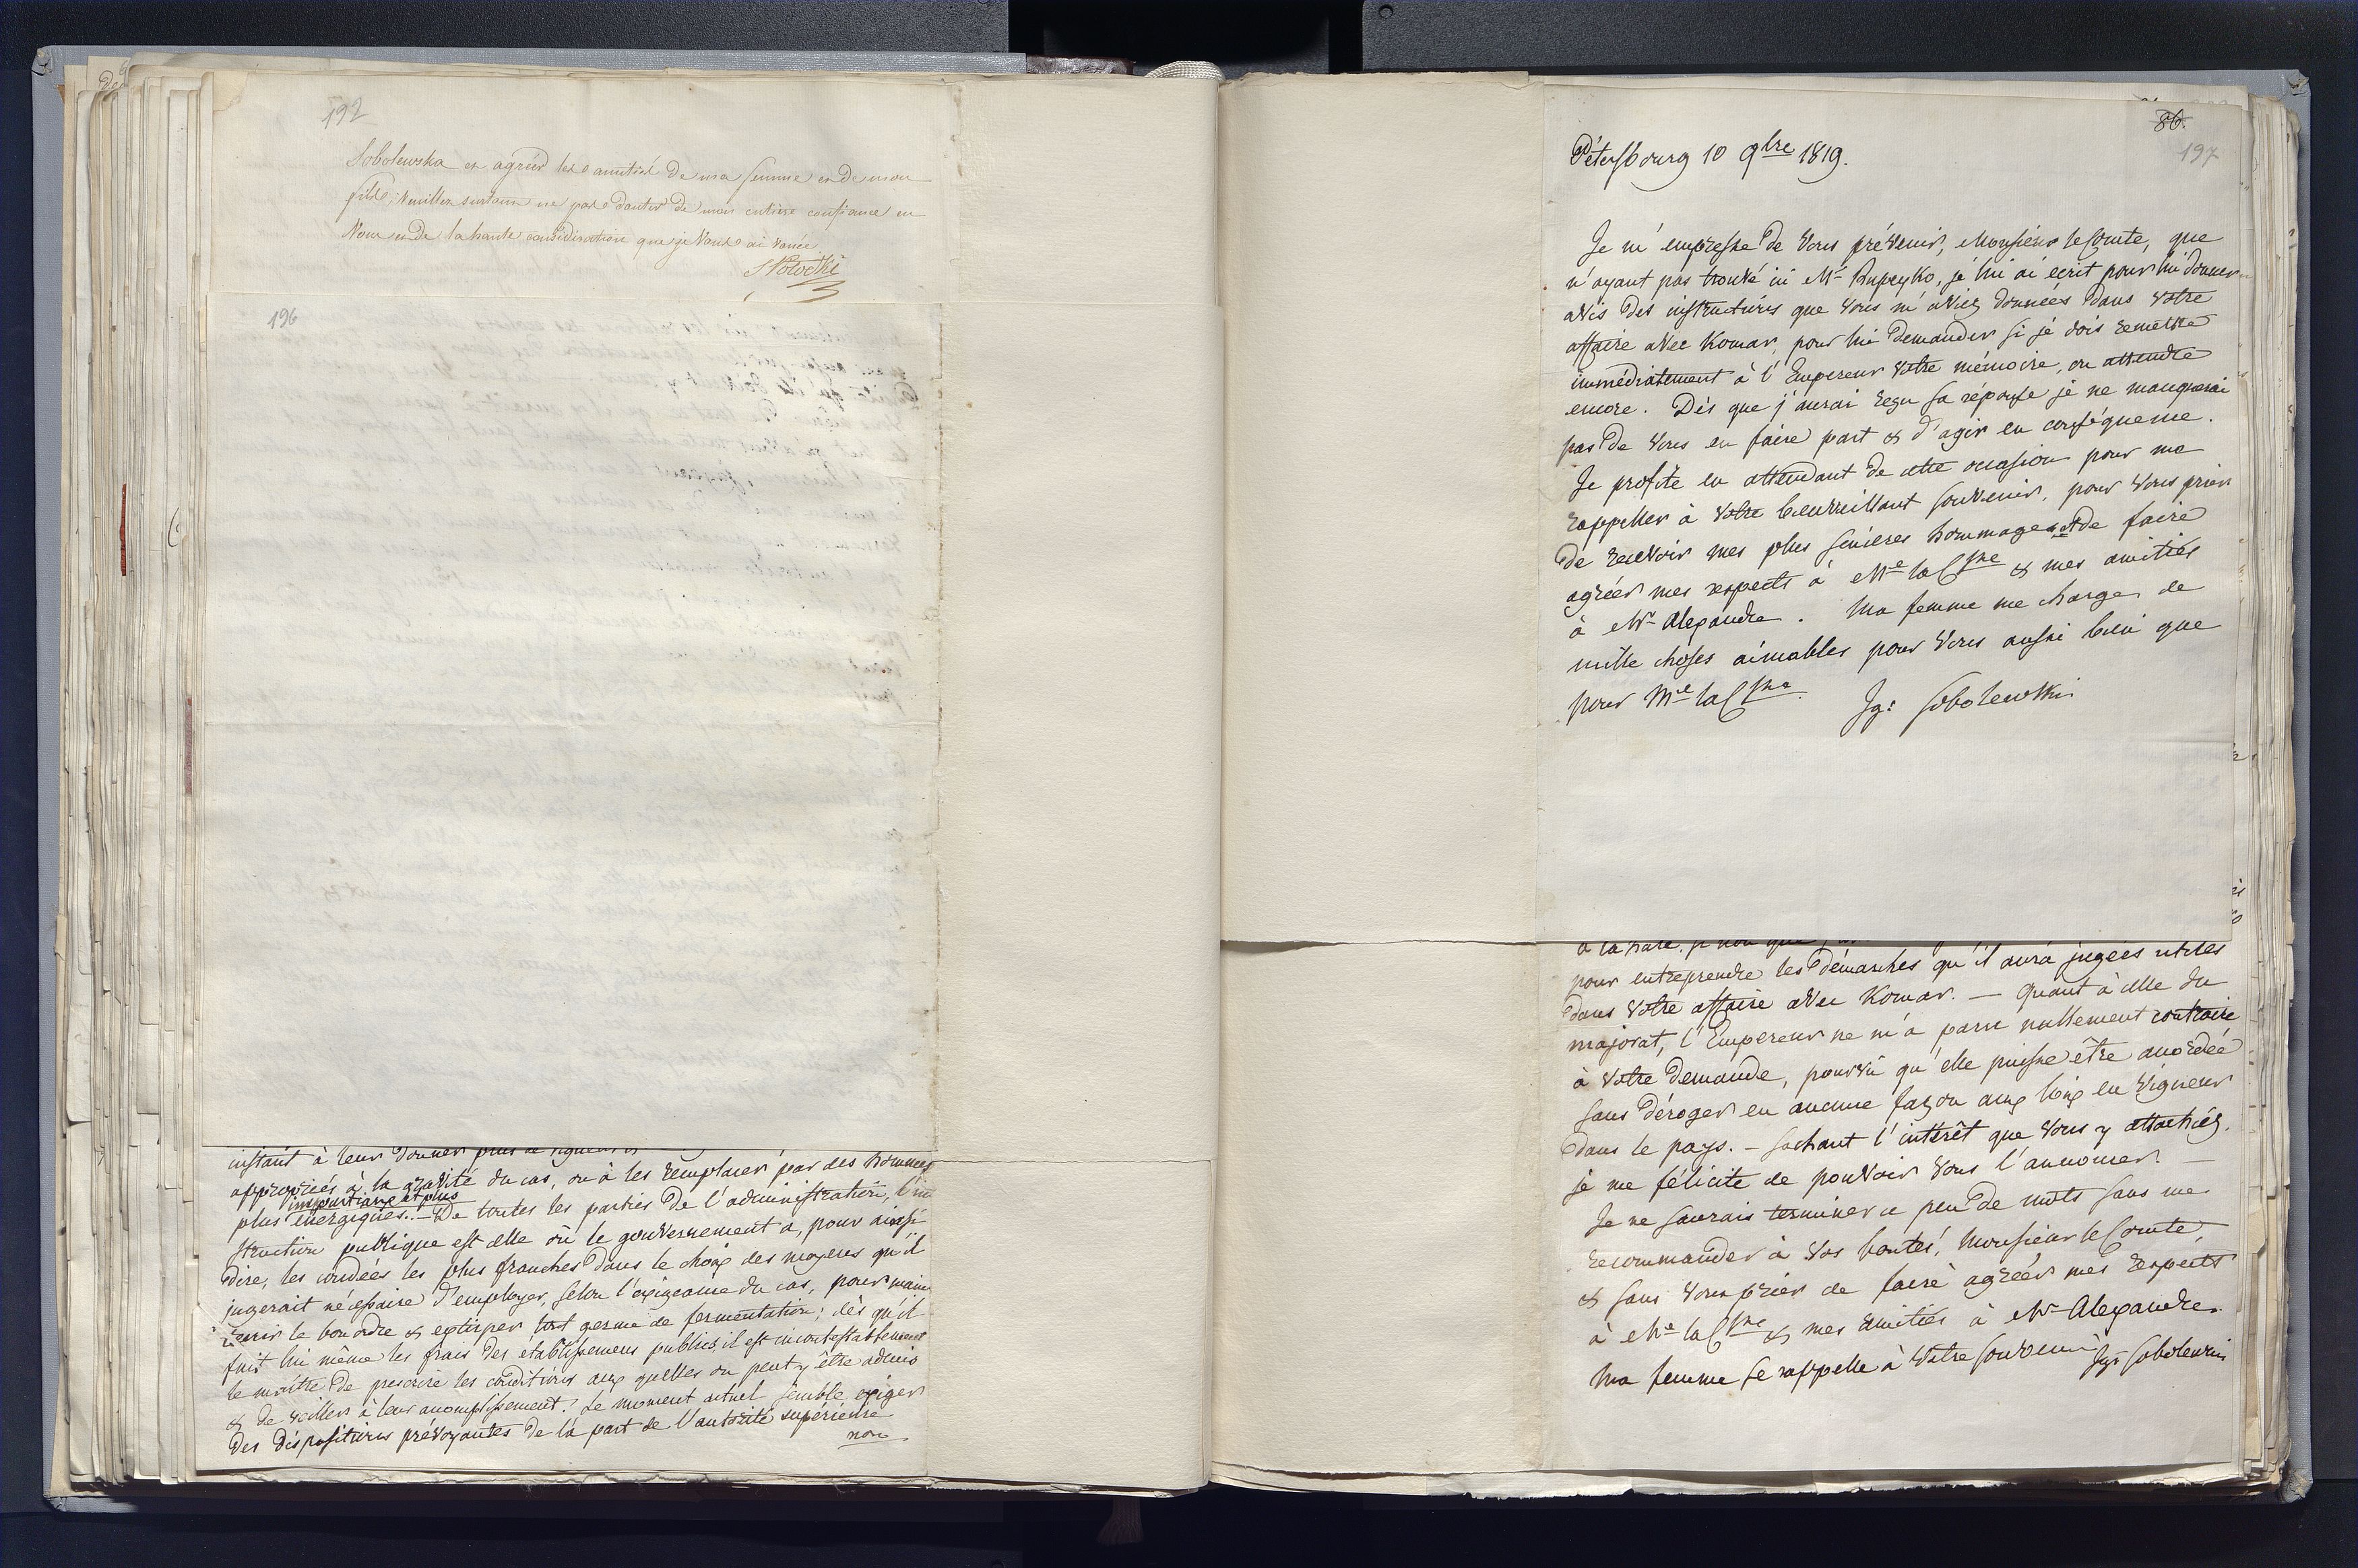 192
Sobolewska et agréér les amitiés de ma femme et de mon
fils. Veuillez surtout ne pas douter de mon entiere confiance en
Vous et de la haute considération que je Vous ai vouée
S Potocki
196
instant à leur donner plus de
appropriés à la gravité du cas, ou à les remplacer par des hommes
impartiaux et plus
plus énergiques. — De toutes les parties de l'administration, l'in
struction publique est celle où le gouvernement a, pour ainsi
dire, les coudées les plus franches dans le choix des moyens qu'il
jugerait nécessaire d'employer, selon l'exigeance du cas, pour main
tenir le bon ordre & extirper tout germe de fermentation; dès qu'il
fait lui même les frais des établissemens publics, il est incontestablement
le maître de prescrire les conditions aux quelles on peut y être admis
& de veiller à leur accomplissement. Le moment actuel semble exiger
des dispositions prévoyantes de la part de l'autorité supérieure
non
86.
197
Pétersbourg 10 9bre 1819.
Je m'empresse de Vous prévenir, Monsieur le Comte, que
n'ayant pas trouvé ici Mr Rupeyko, je lui ai écrit pour lui donner
avis des instructions que Vous m'aviez données dans Votre
affaire avec Komar, pour lui demander si je dois remettre
immédiatement à l'Empereur Votre mémoire, ou attendre
encore. Dès que j'aurai reçu sa réponse je ne manquerai
pas de Vous en faire part & d'agir en conséquence.
Je profite en attendant de cette occasion pour me
rappeller à Votre bienveillant souvenir, pour Vous prier
de recevoir mes plus sincères hommages et de faire
agréer mes respects à Me la Csse & mes amitiés
à Mr Alexandre. Ma femme me charge de
mille choses aimables pour Vous aussi bien que
pour Me la Csse. Ig: Sobolewski
pour entreprendre les démarches qu'il aura jugées utiles
dans Votre affaire avec Komar. — Quant à celle du
majorat, l'Empereur ne m'a paru nullement contraire
à Votre demande, pourvû qu'elle puisse être accordée
sans déroger en aucune façon aux loix en vigueur
dans le pays. — Sachant l'intérêt que Vous y attachéz.
je me félicite de pouvoir Vous l'annoncer. —
Je ne saurais terminer ce peu de mots sans me
recommander à Vos bontés, Monsieur le Comte,
& sans Vous prier de faire agréer mes respects
à Me la Csse & mes amitiés à Mr Alexandre.
Ma femme se rappelle à Votre souvenir Ig: Sobolewski